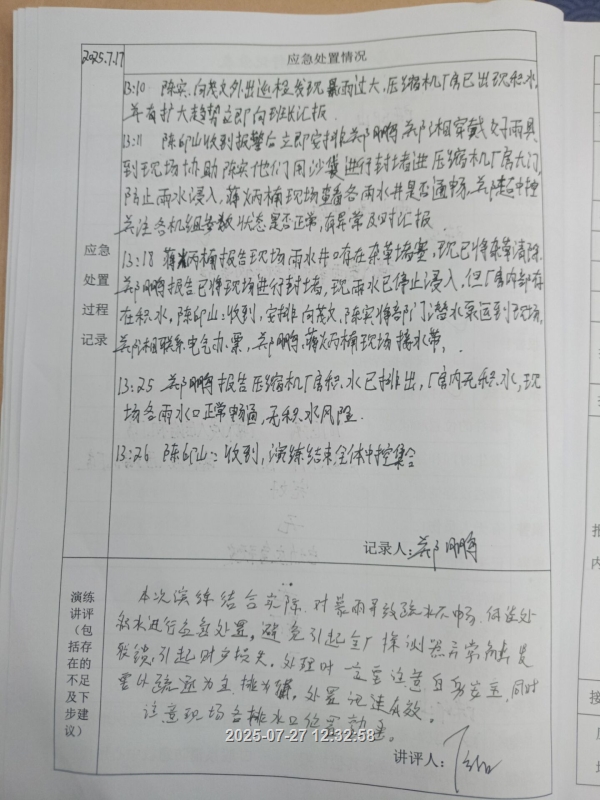 2025.7.17
应急处置情况
13:10 陈实、向茂文外出巡检发现暴雨过大,压缩机厂房已出现积水,
并有扩大趋势立即向班长汇报.
13:11 陈印山收到报警后立即安排郑鹏 相穿戴好雨具
到现场协助陈实他们用沙袋进行封堵进压缩机厂房大门,
防止雨水浸入,蒋炳楠现场查看各雨水井是否通畅, 中控
关注各机组参数、状态是否正常,有异常及时汇报.
13:18 蒋炳楠报告现场雨水井口存在杂草堵塞,现已将杂草清除.
郑鹏报告已将现场进行封堵,现雨水已停止浸入,但厂房内部存
在积水,陈印山:收到,安排向茂文、陈实将部门潜水泵运到现场,
相联系电气办票,郑鹏、蒋炳楠现场接水带。
13:25 郑鹏报告压缩机厂房积水已排出,厂房内无积水,现
场各雨水口正常畅通,无积水风险.
13:26 陈印山:收到,演练结束全体中控集合
应急
处置
过程
记录
记录人:郑鹏
演练
讲评
(包
括存
在的
不足
及下
步建
议)
本次演练结合实际,对暴雨导致疏水不畅、
积水进行应急处置,避免引起全厂探测器异常
联锁,引起财产损失。处理时一定要注意自身安全,同时
要以疏通为主,排为辅,处置迅速有效。
注意现场各排水口位置
2025-07-27 12:32:58
讲评人: